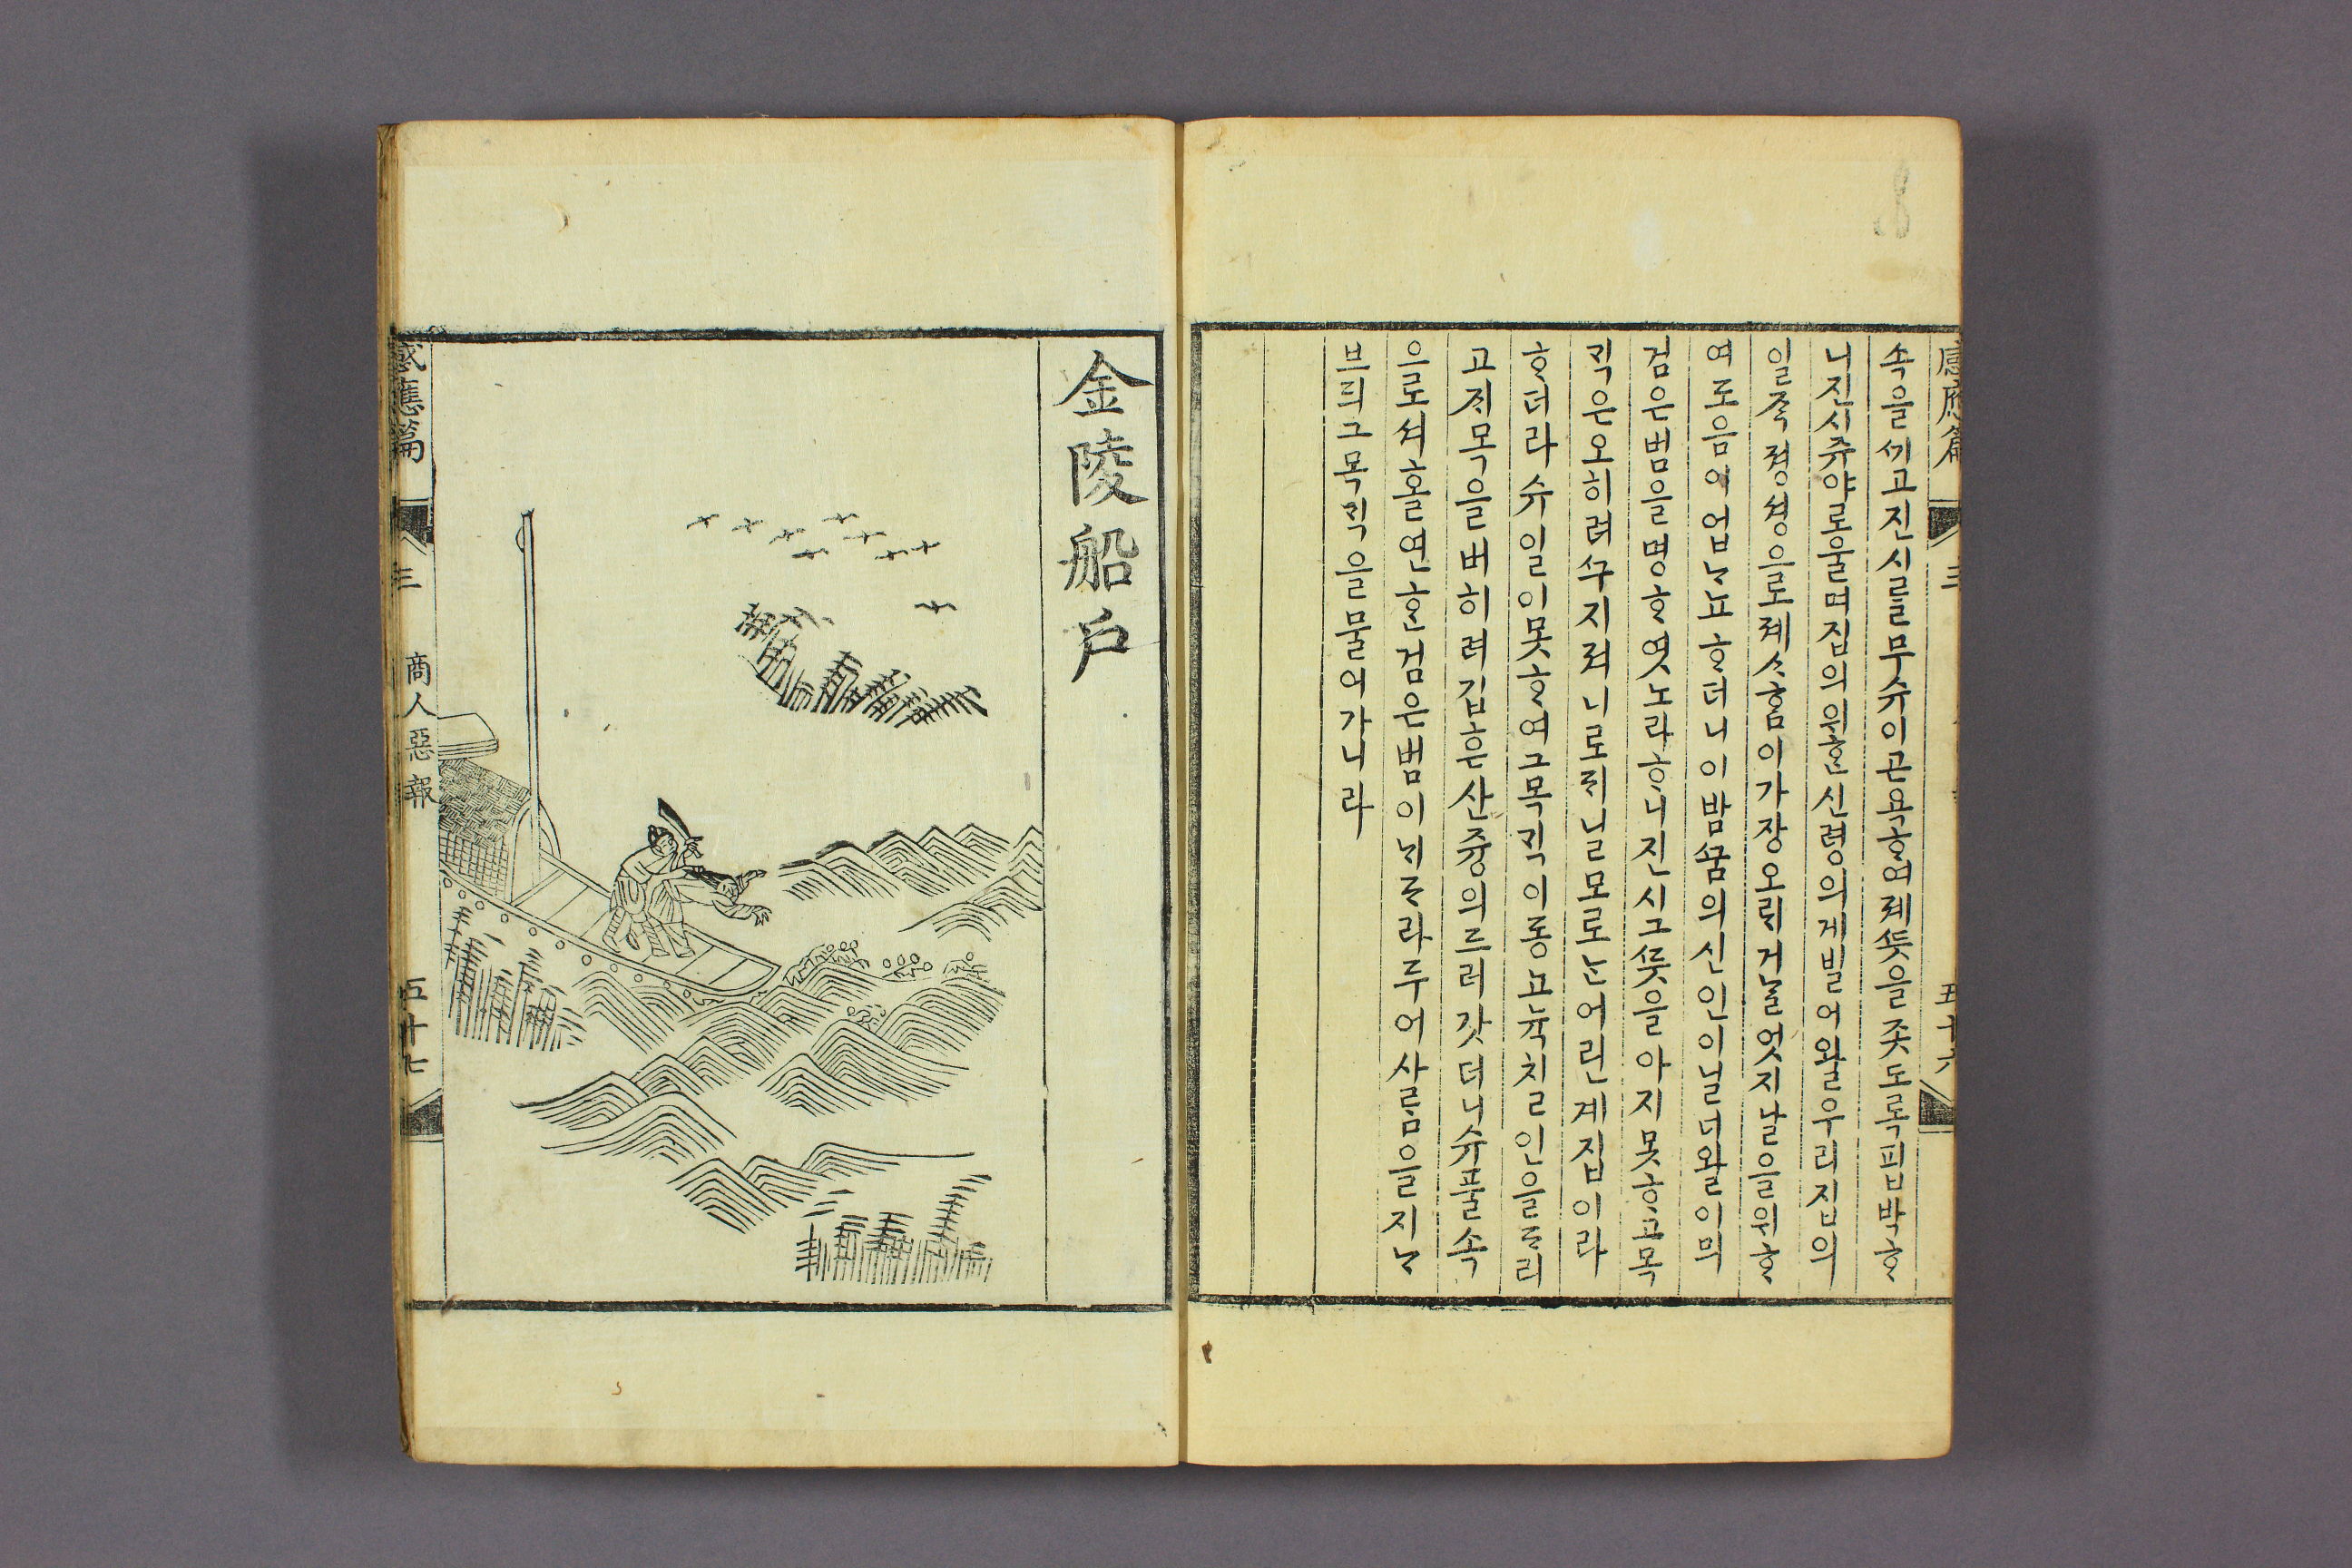 感應篇 三 五十六
속을 세고 진시를 무슈이 곤욕ᄒᆞ여 졔 ᄯᅳᆺ을 좃도록 핍박ᄒᆞ
니 진시 쥬야로 울며 집의 위ᄒᆞᆫ 신령의게 빌어 왈 우리 집의
일즉 졍셩으로 졔ᄉᆞᄒᆞᆷ이 가장 오ᄅᆡ거ᄂᆞᆯ 엇지 날을 위ᄒᆞ
여 도음이 업ᄂᆞ뇨 ᄒᆞ더니 이 밤 ᄭᅮᆷ의 신인이 닐더 왈 이믜
검은 범을 명ᄒᆞ엿노라 ᄒᆞ니 진시 그 ᄯᅳᆺ을 아지 못ᄒᆞ고 목
ᄌᆡᆨ은 오히려 ᄭᅮ지져 니로ᄃᆡ 닐 모로ᄂᆞᆫ 어린 계집이라
ᄒᆞ더라 슈일이 못ᄒᆞ여 그 목ᄌᆡᆨ이 동뇨 뉵칠인을 ᄃᆞ리
고 ᄌᆡ목을 버히려 깁흔 산즁의 드러갓더니 슈풀 속
으로셔 홀연 ᄒᆞᆫ 검은 범이 ᄂᆡᄃᆞ라 두어 사ᄅᆞᆷ을 지ᄂᆞ
ᄇᆞ리고 목ᄌᆡᆨ을 물어가니라
金陵船戶
感應篇 三 商人惡報 五十七